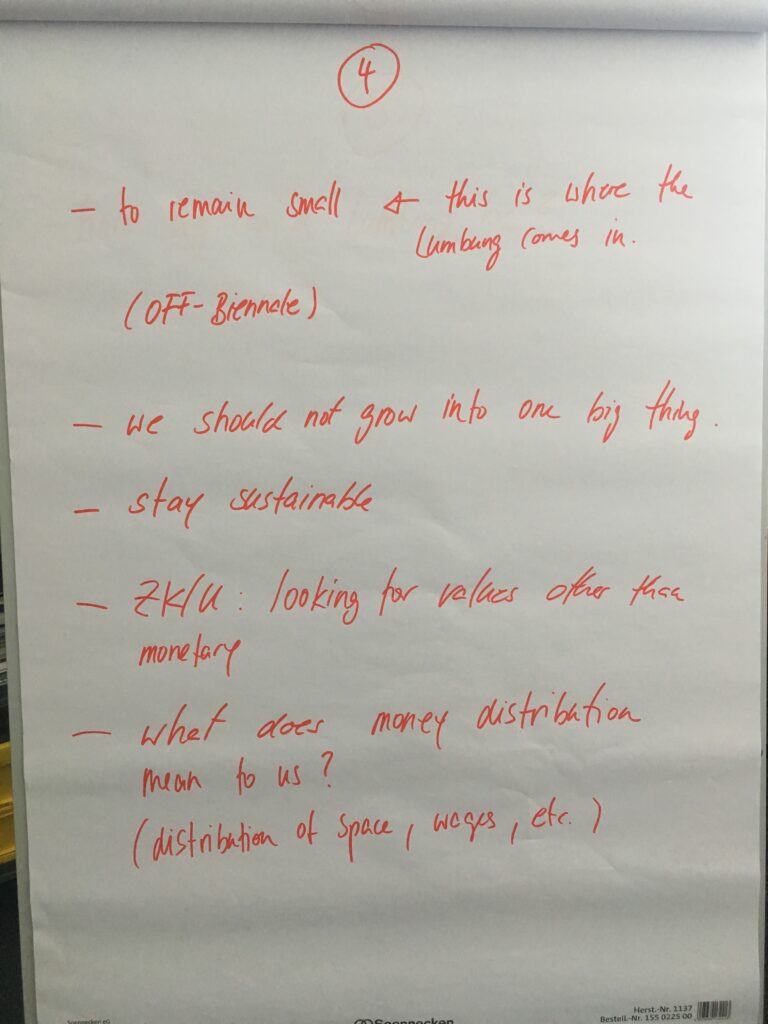 4
– to remain small ← this is where the
Lumbung comes in.
(OFF-Biennale)
– we should not grow into one big thing.
– stay sustainable
– ZK/U: looking for values other than
monetary
– what does money distribution
mean to us?
(distribution of space, wages, etc.)
Herst.-Nr. 1137
Bestell.-Nr. 155 0225 00
Soennecken eG
Soennecken